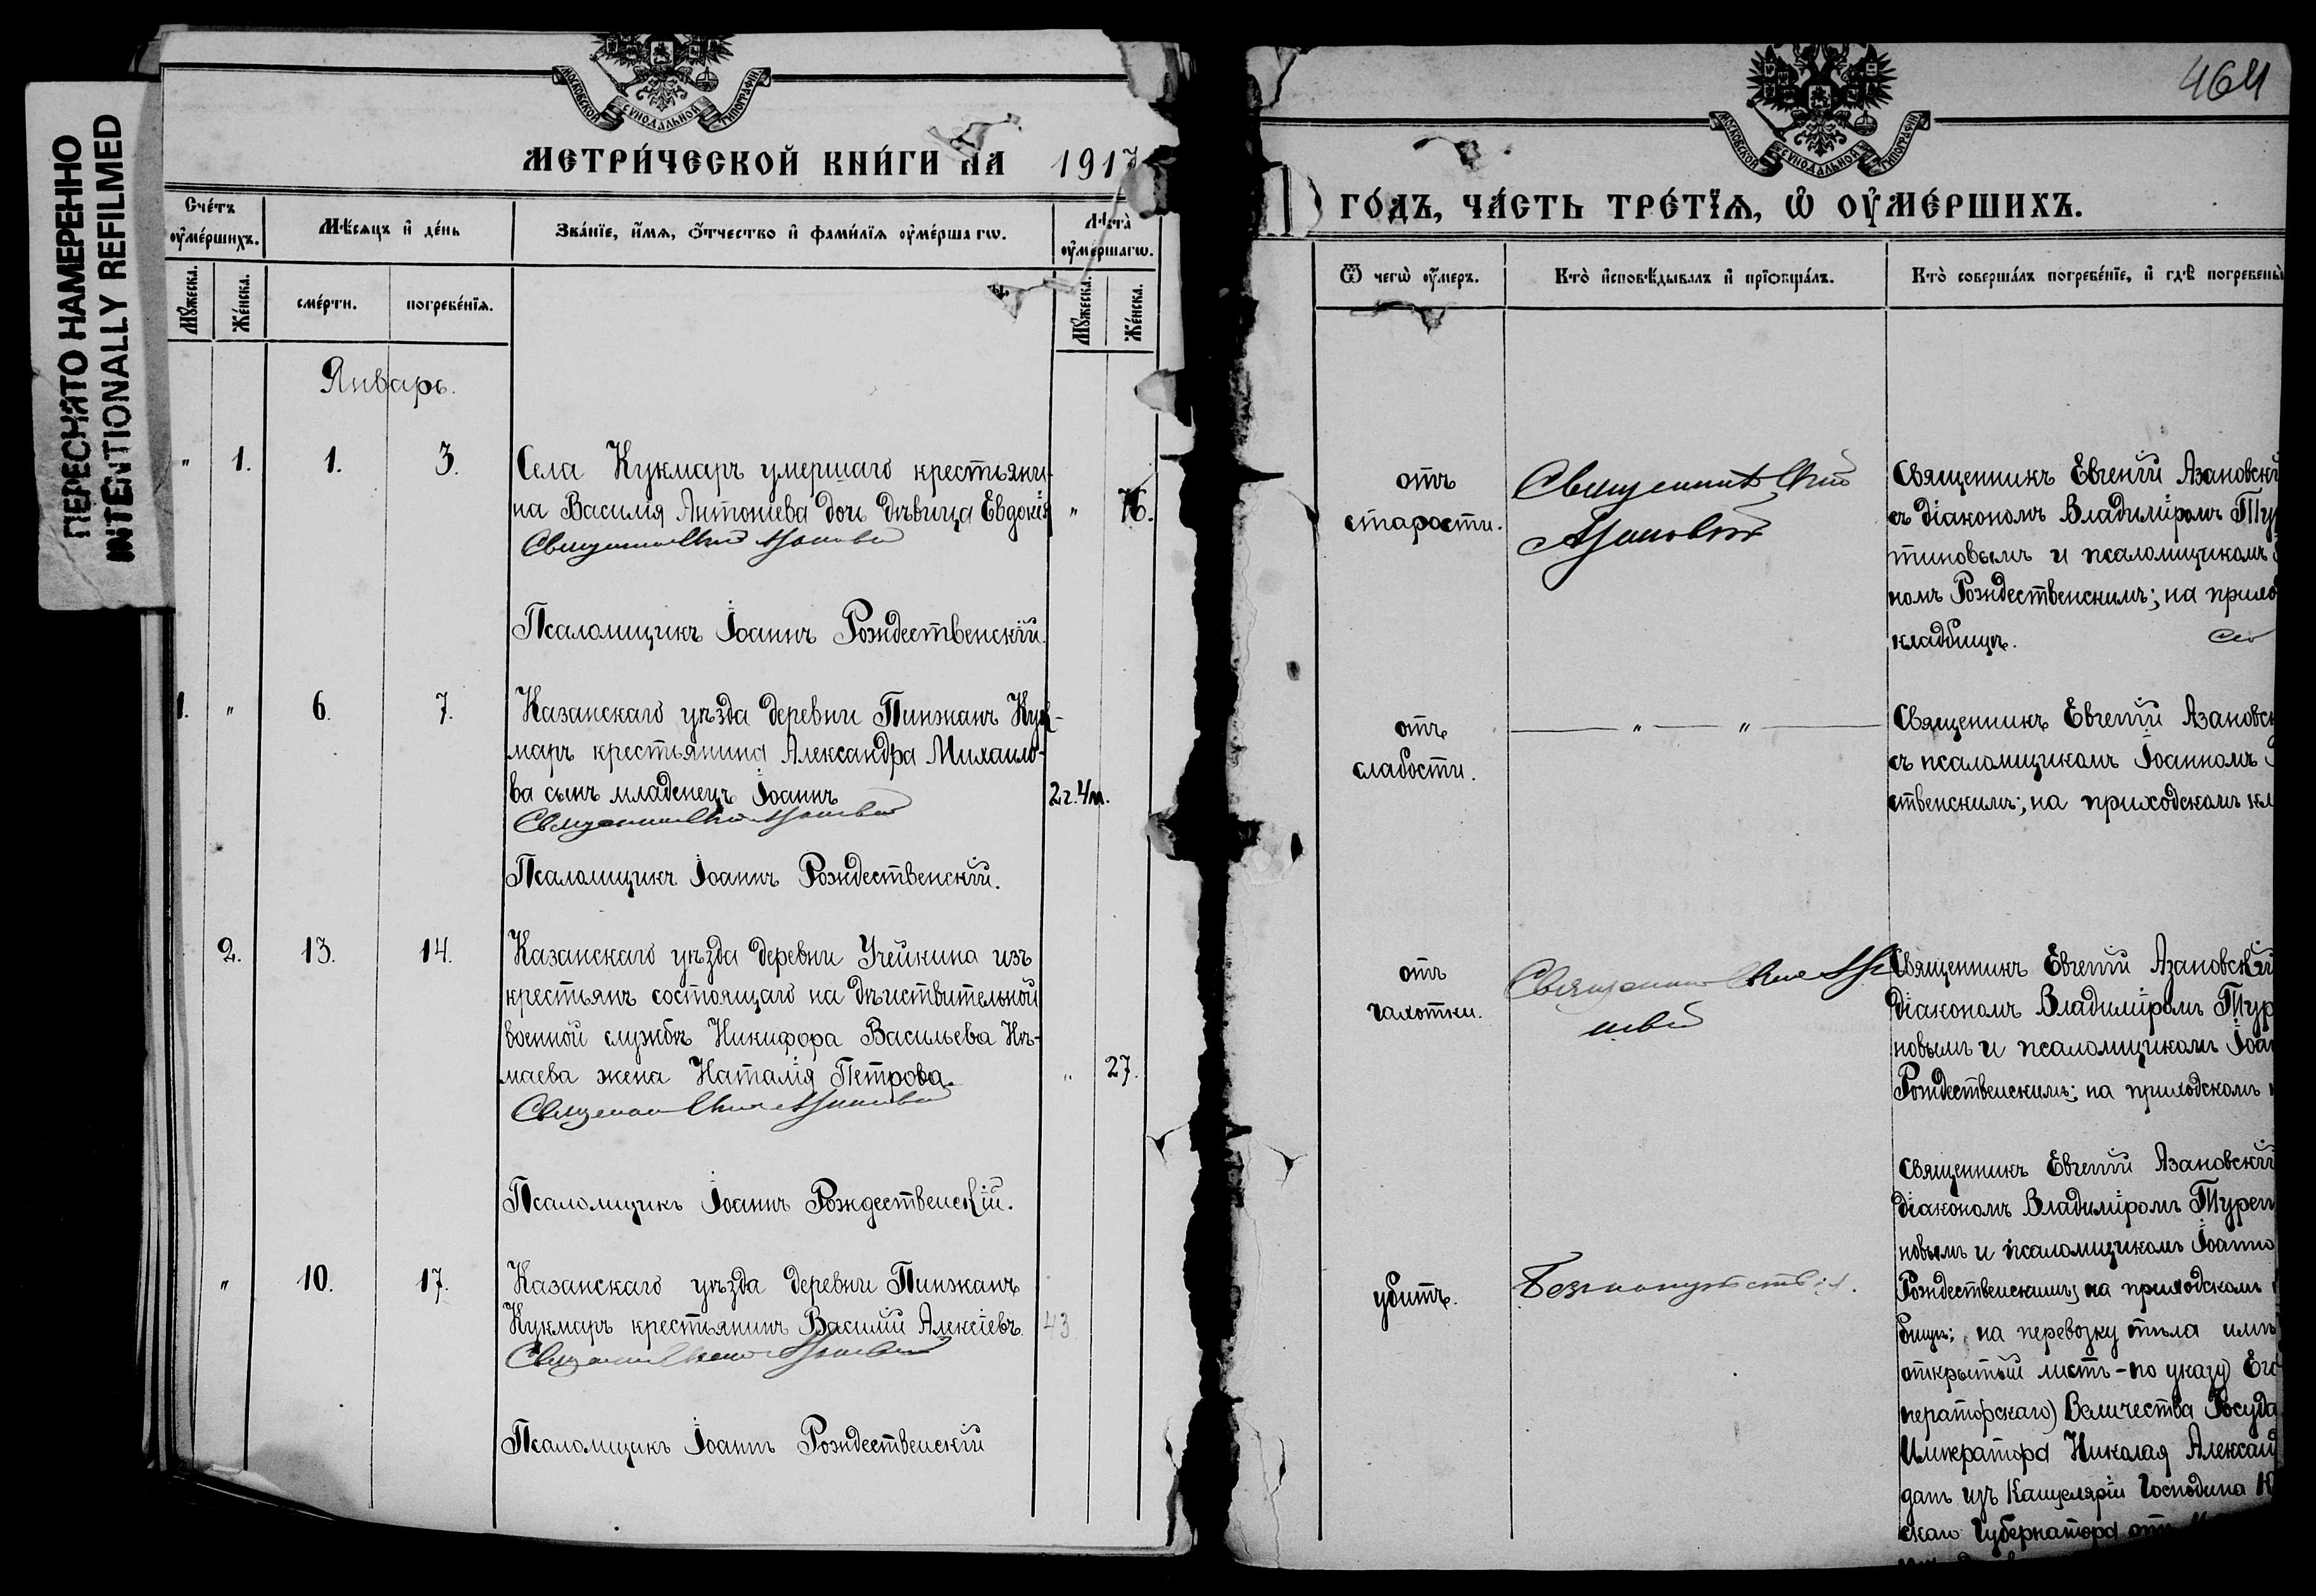 ПЕРЕСНЯТО НАМЕРЕННО
INTENTIONALLY REFILMED
МОСКОВСКОЙ СУНОДАЛЬНОЙ ТИПОГРАФІИ
МЕТРИ́ЧЕСКОЙ КНИ́ГИ НА 1917
Сче́тъ оу҆ме́ршихъ.
Мѣ́сяцъ и҆ де́нь
Зва́нїе, и҆́мя, ѻ҆́тчество и҆ фами́лїя оу҆ме́ршагѡ.
Лѣ́та оу҆ме́ршагѡ.
Мꙋ́жеска.
Же́нска.
сме́рти.
погребе́нїя.
Мꙋ́жеска.
Же́нска.
Январь.
" 1. 1. 3.
Села Кукмаръ умершаго крестьяни-
на Василія Антоніева дочь дѣвица Евдокія " 76.
Псаломщикъ Іоаннъ Рождественскій.
1. " 6. 7.
Казанскаго уѣзда деревни Пинжанъ Кук-
маръ крестьянина Александра Михаило-
ва сынъ младенецъ Іоаннъ 2г. 4м.
Псаломщикъ Іоаннъ Рождественскій.
2. 13. 14.
Казанскаго уѣзда деревни Учейкина изъ
крестьянъ состоящаго на дѣйствительной
военной службѣ Никифора Васильева
жена Наталія Петрова. " 27.
Псаломщикъ Іоаннъ Рождественскій.
" 10. 17.
Казанскаго уѣзда деревни Пинжанъ
Кукмаръ крестьянинъ Василій Алексіевъ. 43
Псаломщикъ Іоаннъ Рождественскій
464
МОСКОВСКОЙ СУНОДАЛЬНОЙ ТИПОГРАФІИ
ГО́ДЪ, ЧА́СТЬ ТРЕ́ТЇЯ, Ѡ҆ ОУ҆МЕ́РШИХЪ.
Ѿ чегѡ̀ оу҆́меръ.
Кто̀ и҆сповѣ́дывалъ и҆ прїѡбща́лъ.
Кто̀ соверша́лъ погребе́нїе, и҆ гдѣ̀ погребены̀
отъ
старости.
Священникъ Евгеній Азановскі
съ діакономъ Владиміромъ Тур
тиновымъ и псаломщикомъ
номъ Рождественскимъ; на прихо
кладбищѣ.
отъ
слабости.
— " — " —
Священникъ Евгеній Азановск
съ псаломщикомъ Іоанномъ
ственскимъ; на приходскомъ кл
отъ
чахотки.
Священникъ Евгеній Азановскій
діакономъ Владиміромъ Тур
новымъ и псаломщикомъ Іоан
Рождественскимъ; на приходскомъ
убитъ.
Священникъ Евгеній Азановскій
діакономъ Владиміромъ Турен
новымъ и псаломщикомъ Іоанно
Рождественскимъ; на приходскомъ
бищѣ; на перевозку тѣла имѣ
открытый листъ - по указу Его
ператорскаго Величества Госуда
Императора Николая Александ
данъ изъ Канцеляріи Господина
скаго Губернатора отъ